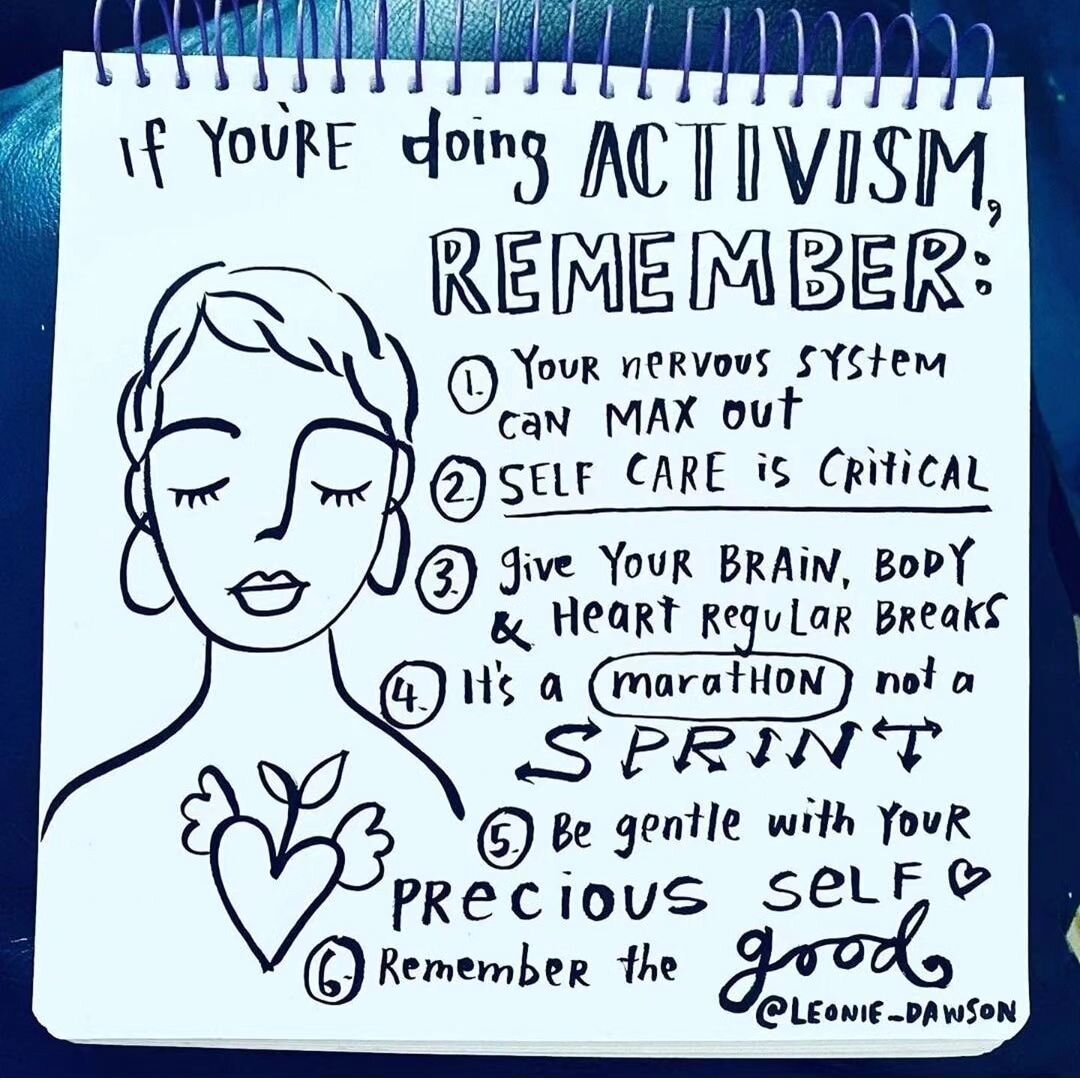 If YOU'RE doing ACTIVISM,
REMEMBER:
1. YOUR NERVOUS SYSTEM
CAN MAX OUT
2. SELF CARE is CRITICAL
3. give YOUR BRAIN, BODY
& HEART REGULAR BREAKS
4. It's a maratHON not a
SPRINT
5. Be gentle with YOUR
PRECIOUS SELF ♡
6. Remember the good
@LEONIE_DAWSON